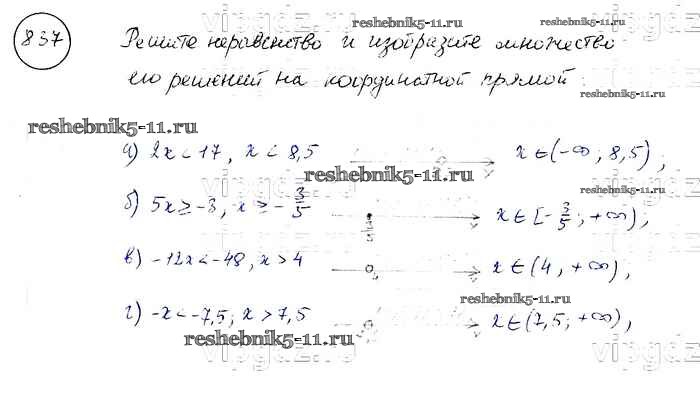 837
Решите неравенство и изобразите множество
его решений на координатной прямой
reshebnik5-11.ru
reshebnik5-11.ru
reshebnik5-11.ru
reshebnik5-11.ru
а) 2x < 17, x < 8,5 x ∈ (-∞; 8,5);
reshebnik5-11.ru
б) 5x ≥ -3, x ≥ -3/5 x ∈ [-3/5; +∞);
в) -12x < -48, x > 4 x ∈ (4, +∞),
reshebnik5-11.ru
г) -x < -7,5; x > 7,5 x ∈ (7,5; +∞),
reshebnik5-11.ru
vipgdz.ru
vipgdz.ru